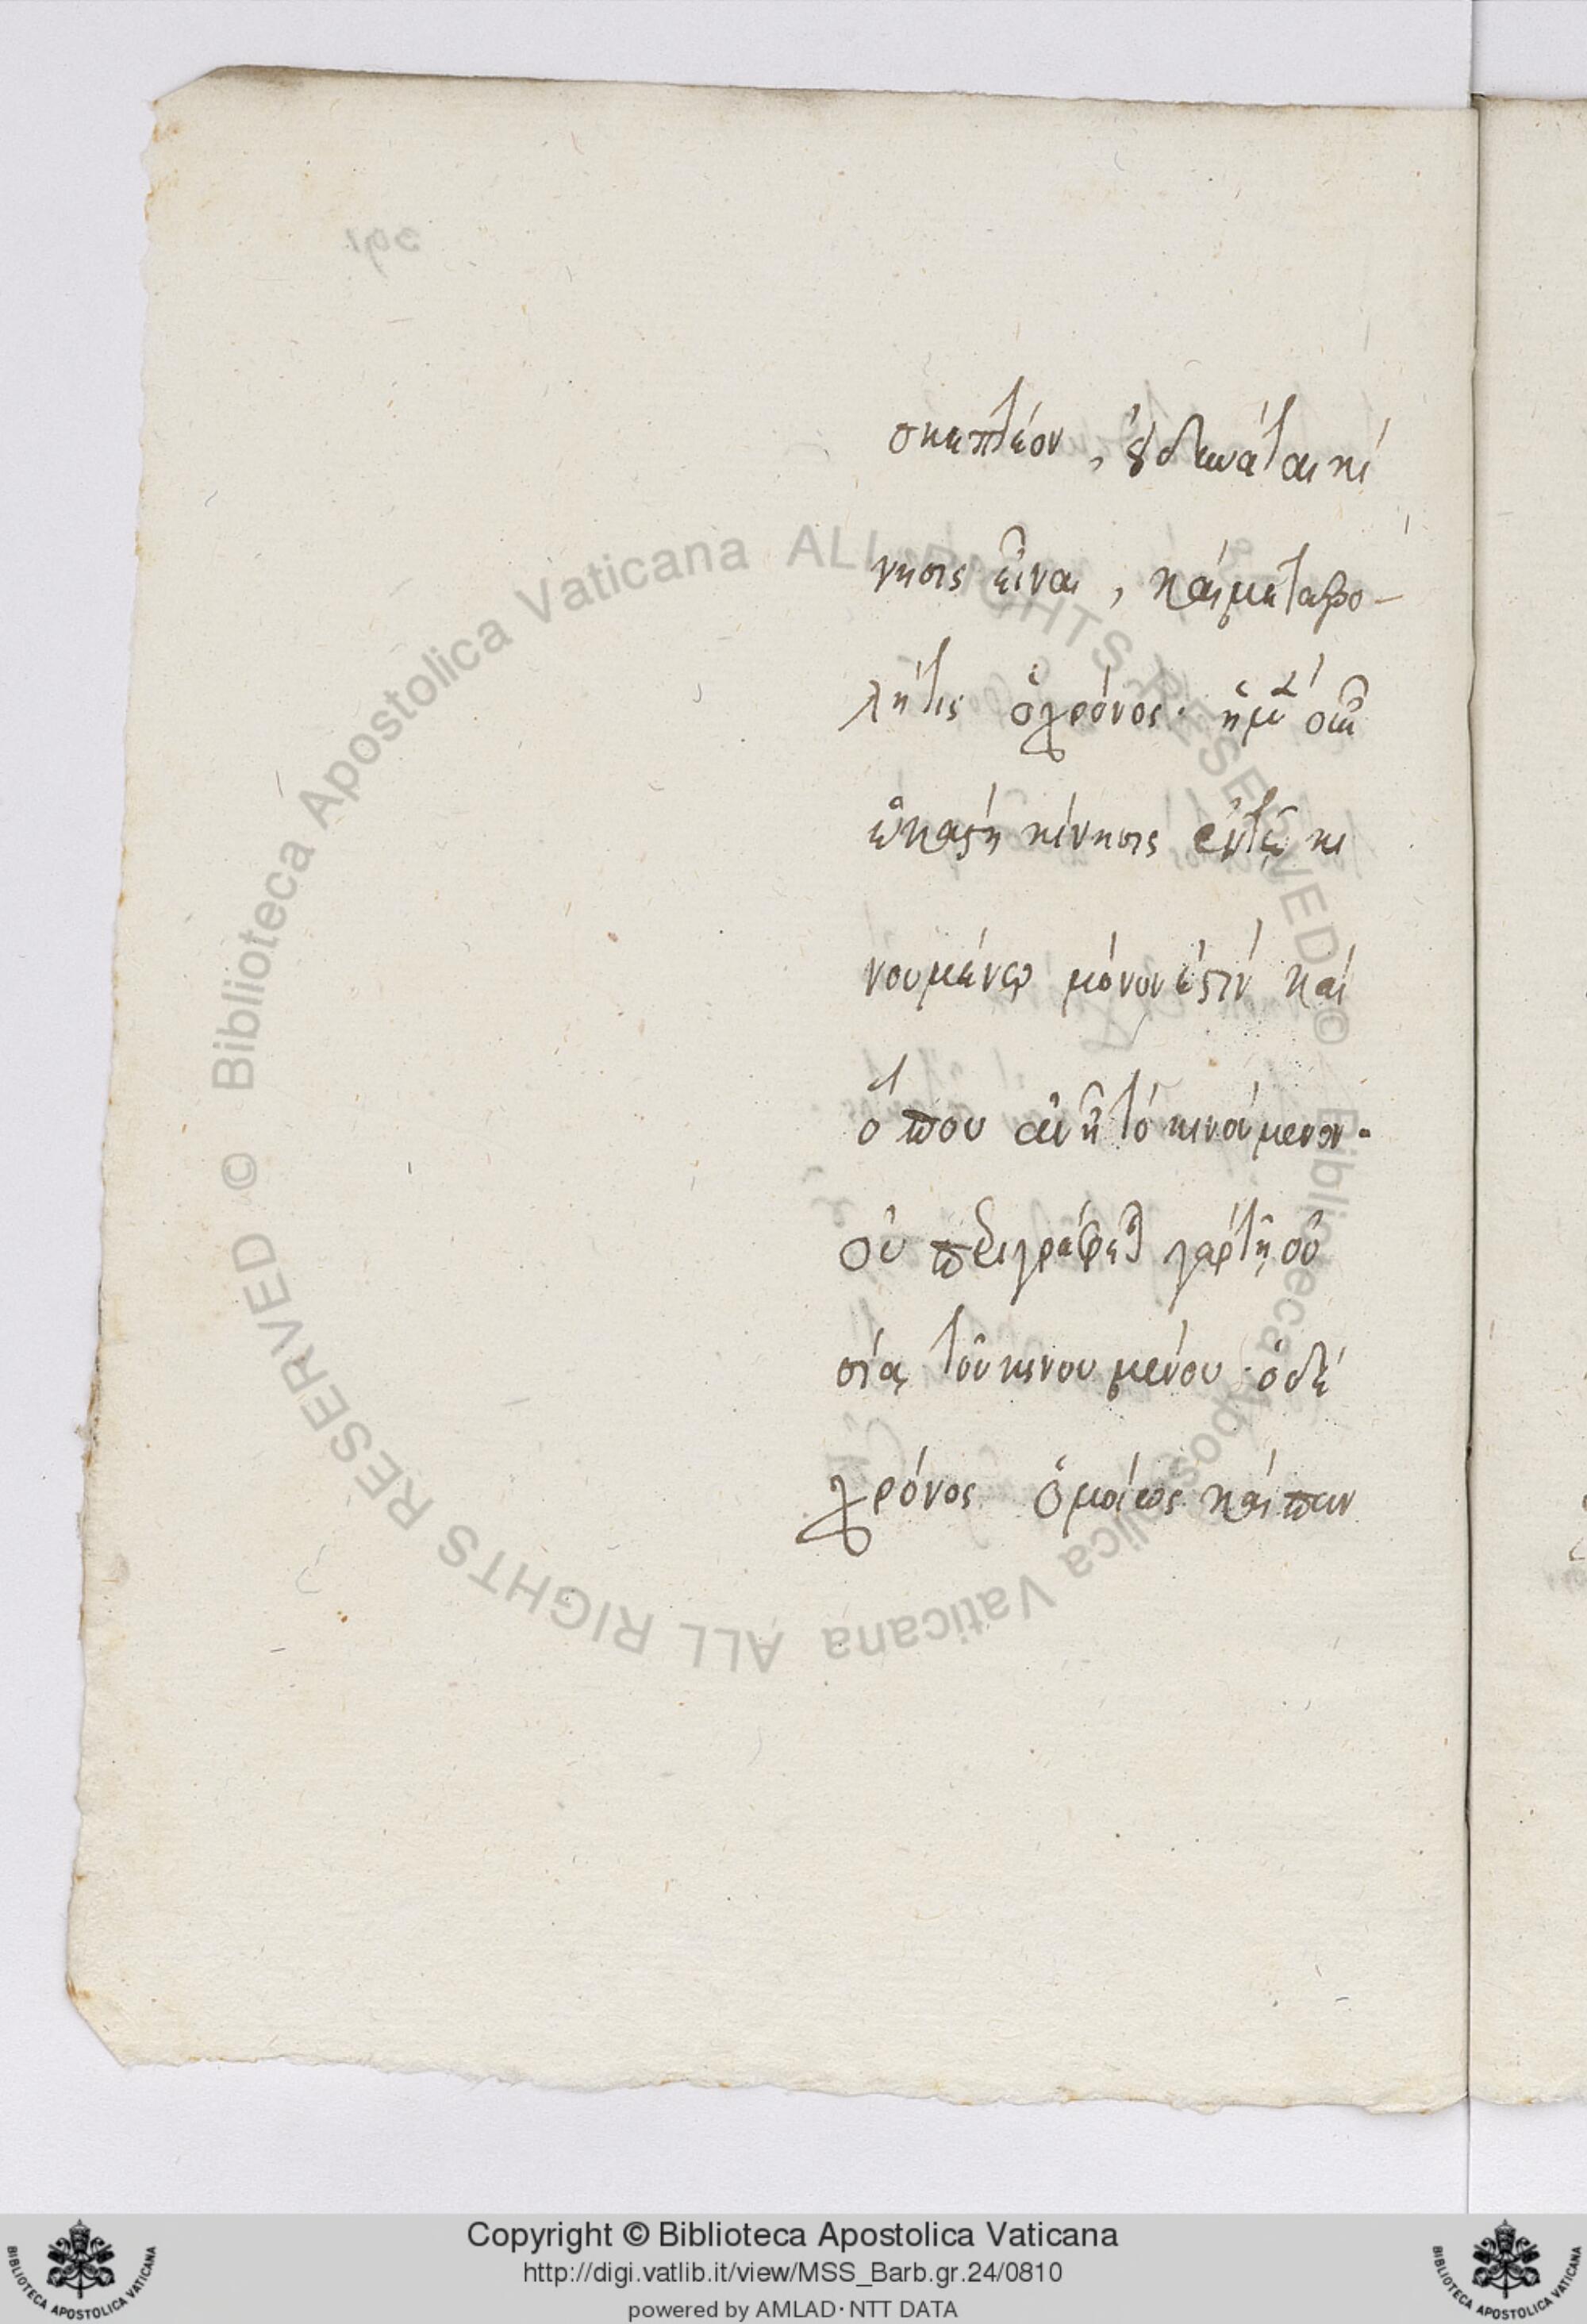 σκεπτέον, οὐ δύναται κί
νησις εἶναι, καὶ μεταβο-
λή τις ὁ χρόνος· ἡ μὲν οὖν
ἑκάστη κίνησις ἐν τῷ κι
νουμένῳ μόνον ἐστὶν καὶ
ὅπου ἂν ᾖ τὸ κινούμενον·
συμπεριγράφεται γὰρ τῇ οὐ
σίᾳ τοῦ κινουμένου· ὁ δὲ
χρόνος ὁμοίως καὶ παν
Copyright © Biblioteca Apostolica Vaticana
http://digi.vatlib.it/view/MSS_Barb.gr.24/0810
powered by AMLAD · NTT DATA
© Biblioteca Apostolica Vaticana ALL RIGHTS RESERVED
© Biblioteca Apostolica Vaticana ALL RIGHTS RESERVED
BIBLIOTECA APOSTOLICA VATICANA
BIBLIOTECA APOSTOLICA VATICANA